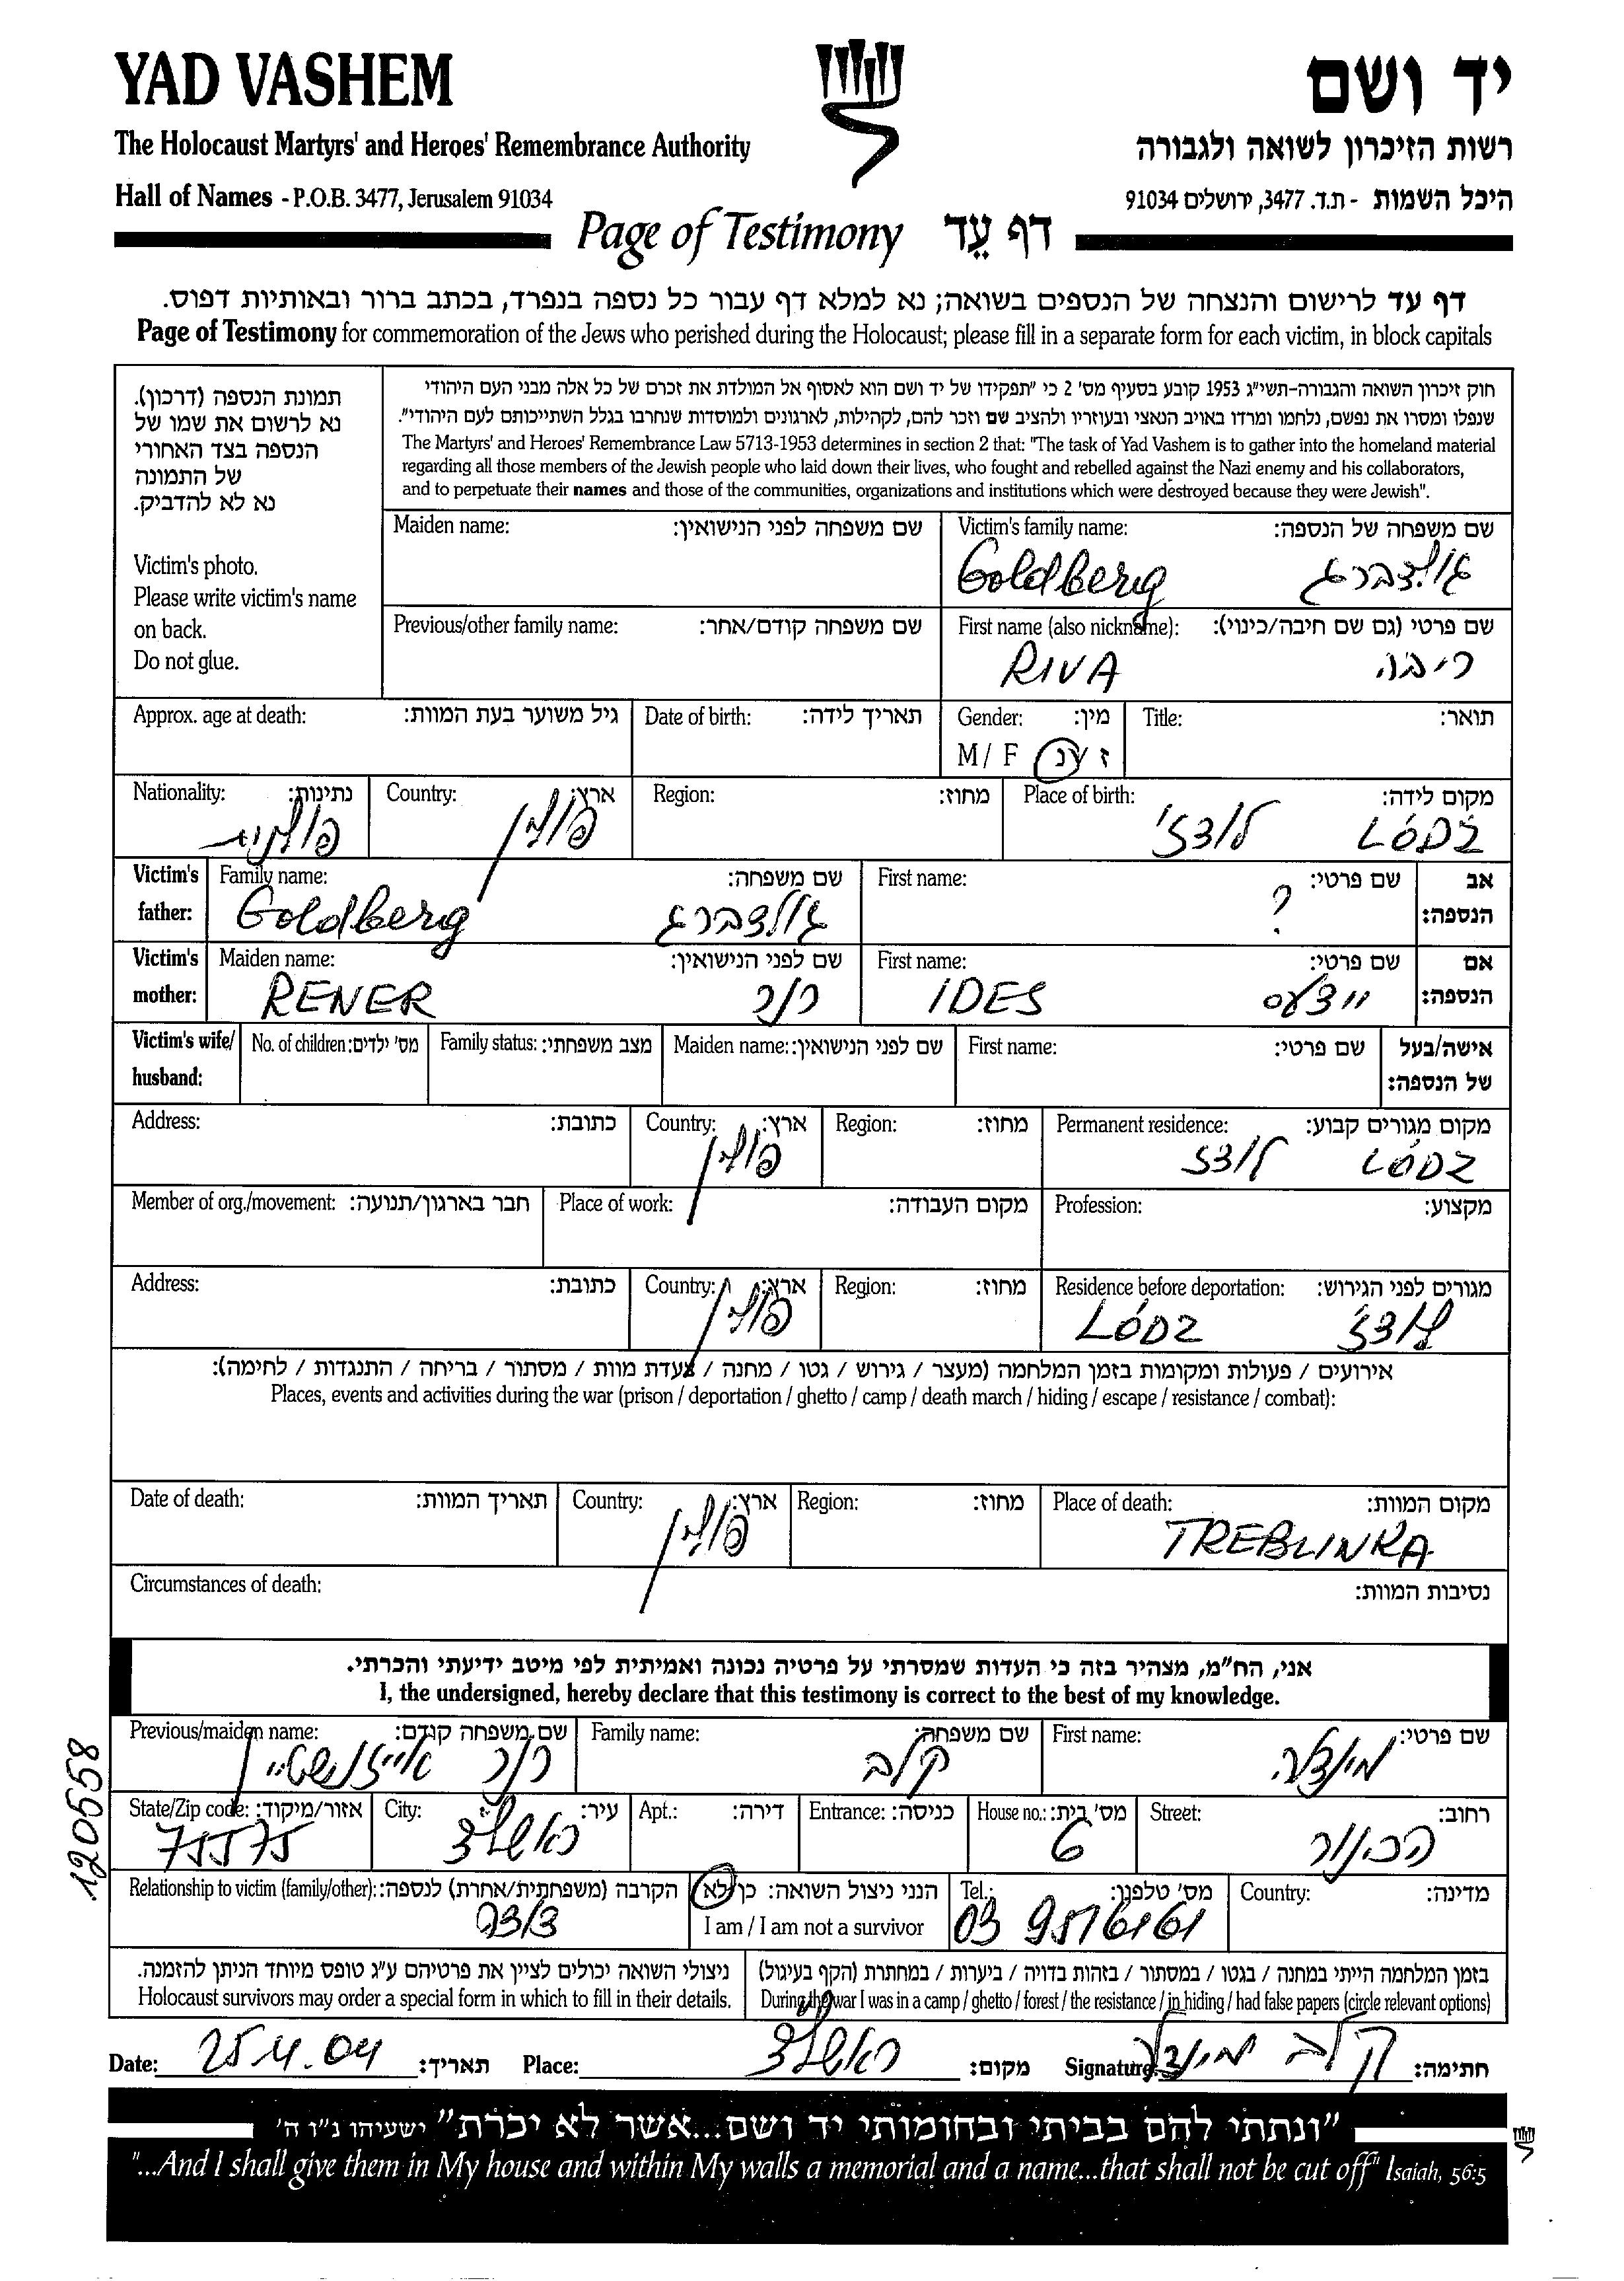 YAD VASHEM
יד ושם
The Holocaust Martyrs' and Heroes' Remembrance Authority
רשות הזיכרון לשואה ולגבורה
Hall of Names - P.O.B. 3477, Jerusalem 91034
היכל השמות - ת.ד. 3477, ירושלים 91034
Page of Testimony דף עֵד
דף עד לרישום והנצחה של הנספים בשואה; נא למלא דף עבור כל נספה בנפרד, בכתב ברור ובאותיות דפוס.
Page of Testimony for commemoration of the Jews who perished during the Holocaust; please fill in a separate form for each victim, in block capitals
תמונת הנספה (דרכון).
נא לרשום את שמו של
הנספה בצד האחורי
של התמונה
נא לא להדביק.
Victim's photo.
Please write victim's name
on back.
Do not glue.
חוק זיכרון השואה והגבורה-תשי"ג 1953 קובע בסעיף מס' 2 כי "תפקידו של יד ושם הוא לאסוף אל המולדת את זכרם של כל אלה מבני העם היהודי
שנפלו ומסרו את נפשם, נלחמו ומרדו באויב הנאצי ובעוזריו ולהציב שם וזכר להם, לקהילות, לארגונים ולמוסדות שנחרבו בגלל השתייכותם לעם היהודי".
The Martyrs' and Heroes' Remembrance Law 5713-1953 determines in section 2 that: "The task of Yad Vashem is to gather into the homeland material
regarding all those members of the Jewish people who laid down their lives, who fought and rebelled against the Nazi enemy and his collaborators,
and to perpetuate their names and those of the communities, organizations and institutions which were destroyed because they were Jewish".
Maiden name: שם משפחה לפני הנישואין: Victim's family name: שם משפחה של הנספה:
Goldberg גולדברג
Previous/other family name: שם משפחה קודם/אחר: First name (also nickname): שם פרטי (גם שם חיבה/כינוי):
RIVA ריבה
Approx. age at death: גיל משוער בעת המוות: Date of birth: תאריך לידה: Gender: מין: Title: תואר:
M / F ז / נ
Nationality: נתינות: Country: ארץ: Region: מחוז: Place of birth: מקום לידה:
פולנית פולין לודז' LÓDZ
Victim's father: Family name: שם משפחה: First name: שם פרטי: אב הנספה:
Goldberg גולדברג ?
Victim's mother: Maiden name: שם לפני הנישואין: First name: שם פרטי: אם הנספה:
RENER רנר IDES יידעס
Victim's wife/ husband: No. of children: מס' ילדים: Family status: מצב משפחתי: Maiden name: שם לפני הנישואין: First name: שם פרטי: אישה/בעל של הנספה:
Address: כתובת: Country: ארץ: Region: מחוז: Permanent residence: מקום מגורים קבוע:
פולין לודז LÓDZ
Member of org./movement: חבר בארגון/תנועה: Place of work: מקום העבודה: Profession: מקצוע:
Address: כתובת: Country: ארץ: Region: מחוז: Residence before deportation: מגורים לפני הגירוש:
פולין LÓDZ לודז'
אירועים / פעולות ומקומות בזמן המלחמה (מעצר / גירוש / גטו / מחנה / צעדת מוות / מסתור / בריחה / התנגדות / לחימה):
Places, events and activities during the war (prison / deportation / ghetto / camp / death march / hiding / escape / resistance / combat):
Date of death: תאריך המוות: Country: ארץ: Region: מחוז: Place of death: מקום המוות:
פולין TREBLINKA
Circumstances of death: נסיבות המוות:
אני, הח"מ, מצהיר בזה כי העדות שמסרתי על פרטיה נכונה ואמיתית לפי מיטב ידיעתי והכרתי.
I, the undersigned, hereby declare that this testimony is correct to the best of my knowledge.
Previous/maiden name: שם משפחה קודם: Family name: שם משפחה: First name: שם פרטי:
רנר קלב מינדלה
State/Zip code: אזור/מיקוד: City: עיר: Apt.: דירה: Entrance: כניסה: House no.: מס' בית: Street: רחוב:
ראשל"צ 6 הכנור
Relationship to victim (family/other): הקרבה (משפחתית/אחרת) לנספה: הנני ניצול השואה: כן / לא Tel.: מס' טלפון: Country: מדינה:
I am / I am not a survivor
דודה 03 9516161
ניצולי השואה יכולים לציין את פרטיהם ע"ג טופס מיוחד הניתן להזמנה.
Holocaust survivors may order a special form in which to fill in their details.
בזמן המלחמה הייתי במחנה / בגטו / במסתור / בזהות בדויה / ביערות / במחתרת (הקף בעיגול)
During the war I was in a camp / ghetto / forest / the resistance / in hiding / had false papers (circle relevant options)
Date: 25.4.04 תאריך: Place: ראשל"צ מקום: Signature: קלב מינדל חתימה:
"ונתתי להם בביתי ובחומותי יד ושם...אשר לא יכרת" ישעיהו נ"ו ה'
"...And I shall give them in My house and within My walls a memorial and a name...that shall not be cut off" Isaiah, 56:5
120558